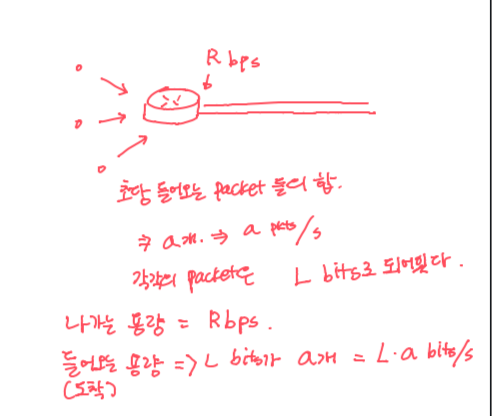 R bps
초당 들어오는 packet 들의 합.
⇒ a개. ⇒ a pkts/s
각각의 packet은 L bits로 되어있다.
나가는 용량 = R bps.
들어오는 용량 => L bits가 a개 = L·a bits/s
(도착)